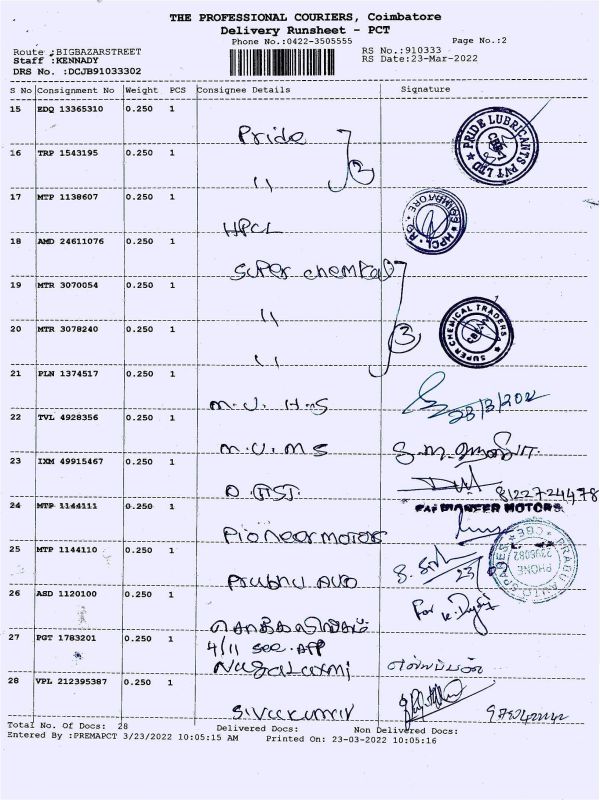 THE PROFESSIONAL COURIERS, Coimbatore
Delivery Runsheet - PCT
Phone No.:0422-3505555 Page No.:2
Route :BIGBAZARSTREET RS No.:910333
Staff :KENNADY RS Date:23-Mar-2022
DRS No. :DCJB91033302
S No Consignment No Weight PCS Consignee Details Signature
15 EDQ 13365310 0.250 1
Pride
PRIDE LUBRICANTS PVT LTD
16 TRP 1543195 0.250 1
" 2
17 MTP 1138607 0.250 1
HPCL
HPCL
18 AMD 24611076 0.250 1
Super chemical
19 MTR 3070054 0.250 1
"
SUPER CHEMICAL TRADERS
20 MTR 3078240 0.250 1
" 3
21 PLN 1374517 0.250 1
M.U. H.S
23/3/202
22 TVL 4928356 0.250 1
M.U.M.S
23 IXM 49915467 0.250 1
8122724478
24 MTP 1144111 0.250 1
PIONEER MOTORS
Pioneer MOTORS
25 MTP 1144110 0.250 1
Prabhu Auto
PRABU AUTO SPARES CBE
PHONE 2396082
26 ASD 1120100 0.250 1
For
27 PGT 1783201 0.250 1
4/11 See. APP
Nagalaxmi
28 VPL 212395387 0.250 1
Sivakumar
Total No. Of Docs: 28 Delivered Docs: Non Delivered Docs:
Entered By :PREMAPCT 3/23/2022 10:05:15 AM Printed On: 23-03-2022 10:05:16